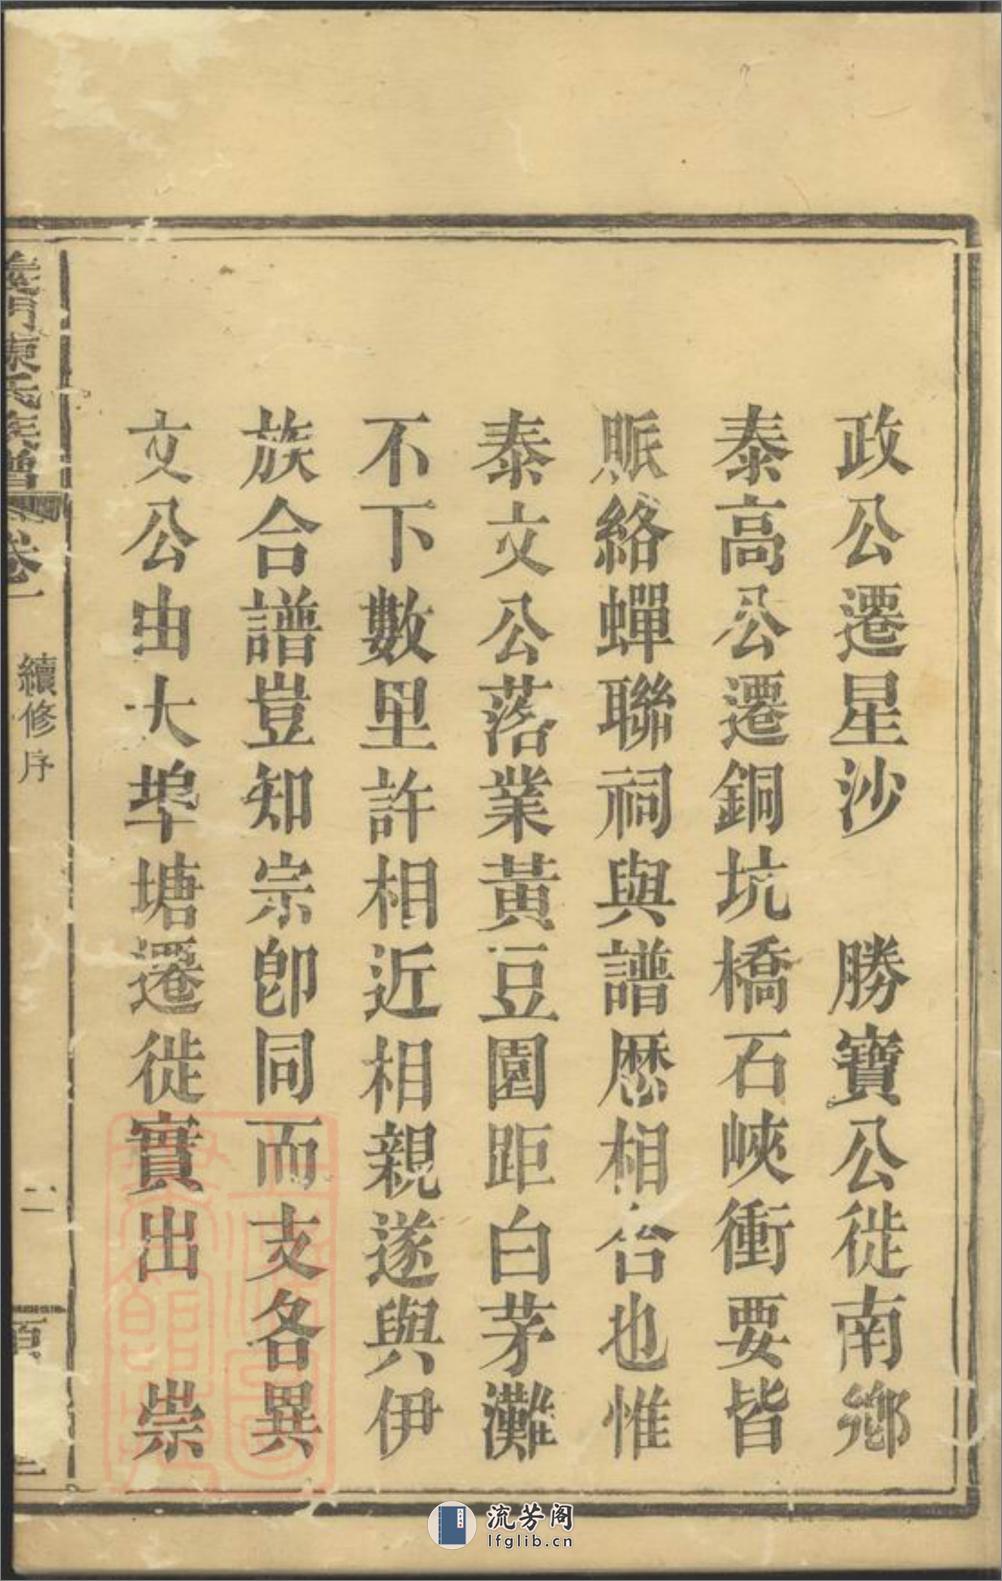 政公遷星沙　勝寶公徙南鄉
泰高公遷銅坑橋石峽衝要皆
賬絡蟬聯祠與譜歷相合也惟
泰文公落業黃豆園距白茅灘
不下數里許相近相親遂與伊
族合譜豈知宗卽同而支各異
文公由大埠塘遷徙實出　崇
義門陳氏族譜
卷一
續修序
二
流芳阁
lfglib.cn